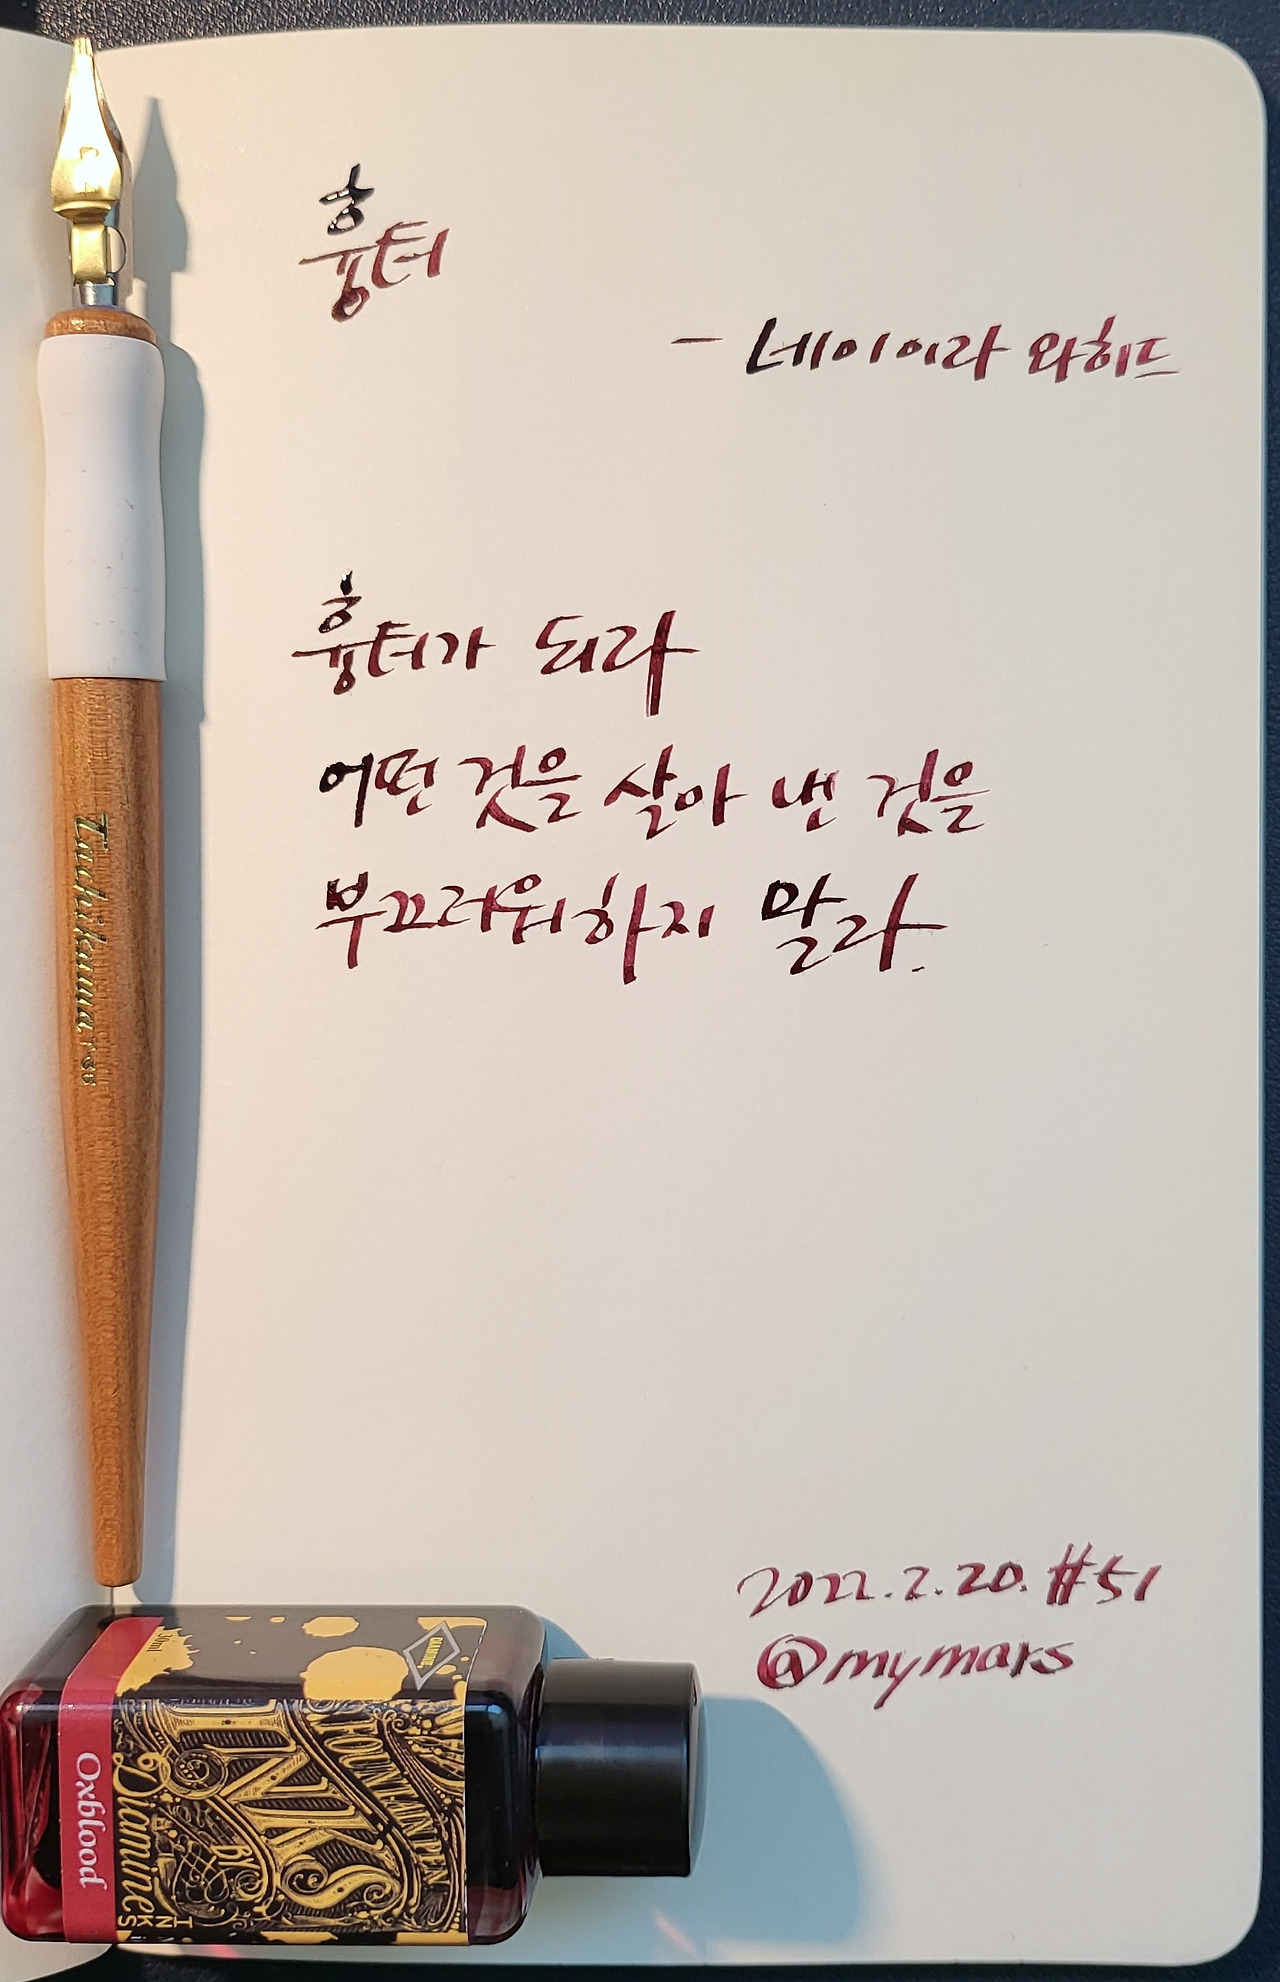 흉터
- 네이이라 와히드
흉터가 되라
어떤 것을 살아 낸 것을
부끄러워하지 말라.
2022.2.20. #51
@mymars
Tachikawa T-36
30ml
DIAMINE
FOUNTAIN PEN
INKS
Diamine
INKS
Oxblood